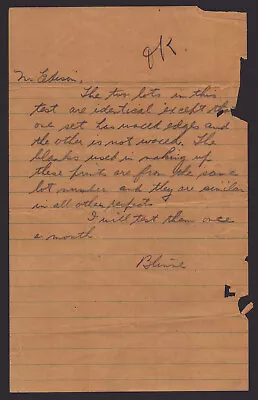 OK.
Mr Edison,
The two lots in this
test are identical except that
one set has waxed edges and
the other is not waxed. The
blanks used in making up
these prints are from the same
lot number and they are similar
in all other respects.
I will test them once
a month